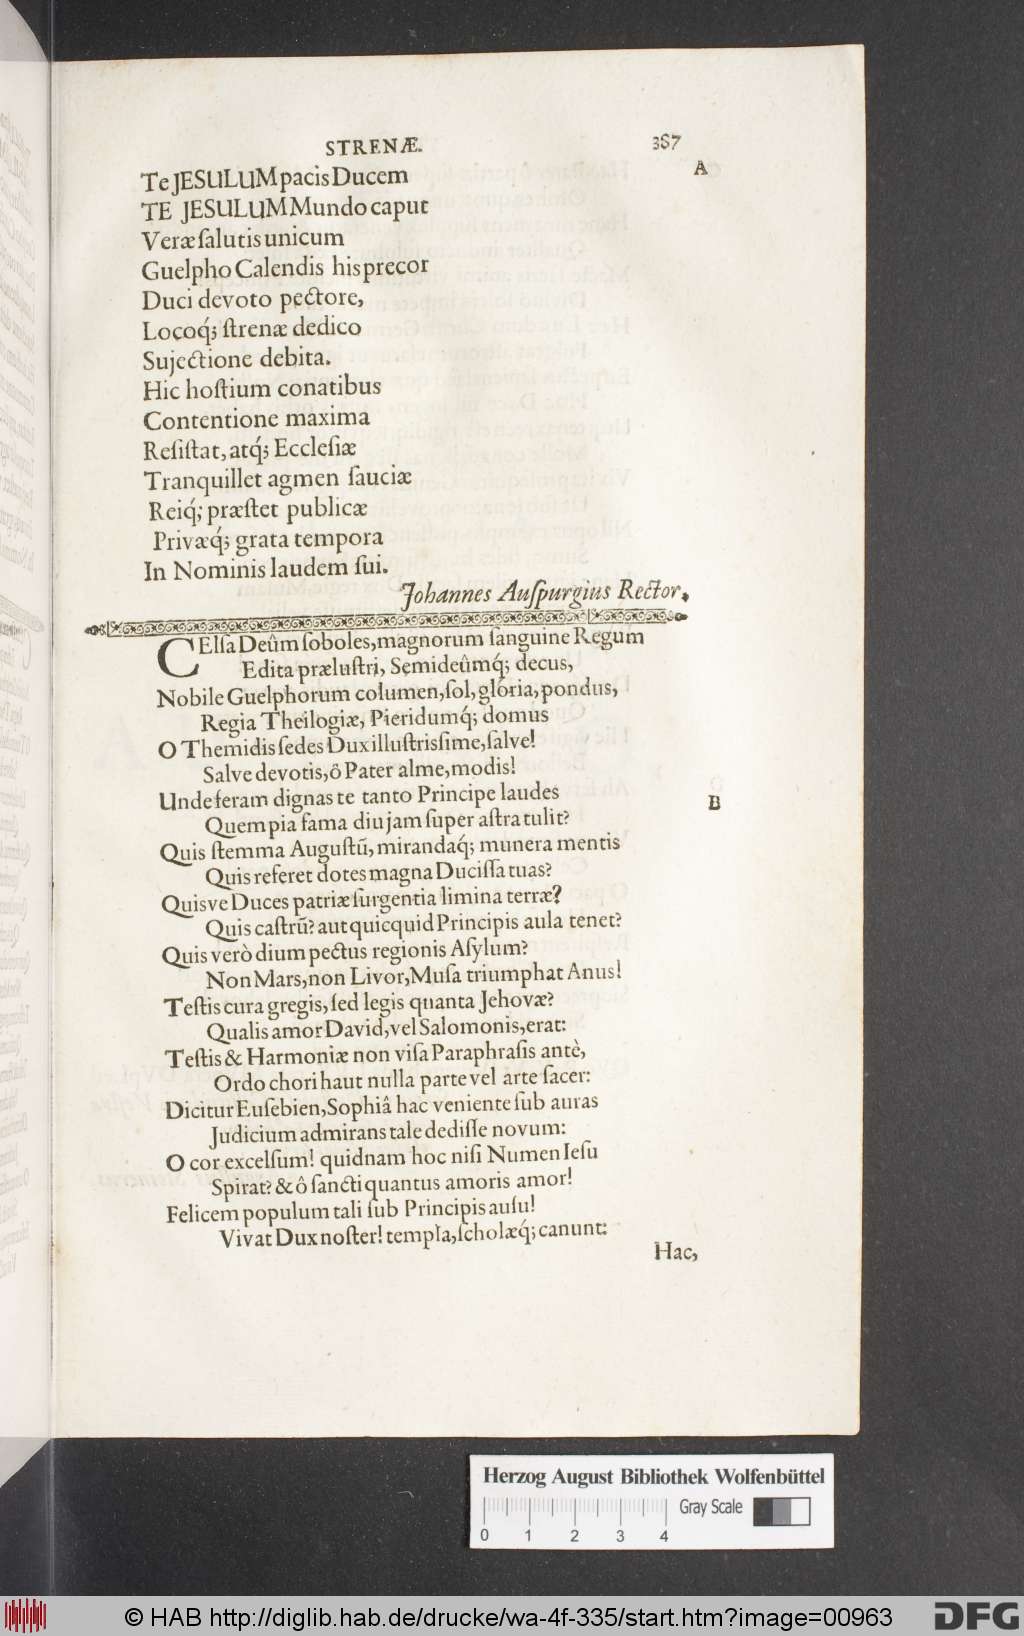 STRENÆ. 387
A
Te JESULUM pacis Ducem
TE JESULUM Mundo caput
Veræ ſalutis unicum
Guelpho Calendis his precor
Duci devoto pectore,
Locoq́; ſtrenæ dedico
Sujectione debita.
Hic hoſtium conatibus
Contentione maxima
Reſiſtat, atq́; Eccleſiæ
Tranquillet agmen ſauciæ
Reiq́; præſtet publicæ
Privæq́; grata tempora
In Nominis laudem ſui.
Johannes Auſpurgius Rector.
CElſa Deûm ſoboles, magnorum ſanguine Regum
Edita præluſtri, Semideûmq́; decus,
Nobile Guelphorum columen, ſol, gloria, pondus,
Regia Theilogiæ, Pieridumq́; domus
O Themidis ſedes Dux illuſtrisſime, ſalve!
Salve devotis, ô Pater alme, modis!
Unde feram dignas te tanto Principe laudes
B
Quem pia fama diu jam ſuper aſtra tulit?
Quis ſtemma Auguſtũ, mirandaq́; munera mentis
Quis referet dotes magna Duciſſa tuas?
Quisve Duces patriæ ſurgentia limina terræ?
Quis caſtrũ? aut quicquid Principis aula tenet?
Quis verò dium pectus regionis Aſylum?
Non Mars, non Livor, Muſa triumphat Anus!
Teſtis cura gregis, ſed legis quanta Jehovæ?
Qualis amor David, vel Salomonis, erat:
Teſtis & Harmoniæ non viſa Paraphraſis antè,
Ordo chori haut nulla parte vel arte ſacer:
Dicitur Euſebien, Sophiâ hac veniente ſub auras
Judicium admirans tale dediſſe novum:
O cor excelſum! quidnam hoc niſi Numen Ieſu
Spirat? & ô ſancti quantus amoris amor!
Felicem populum tali ſub Principis auſu!
Vivat Dux noſter! templa, ſcholæq́; canunt:
Hac,
Herzog August Bibliothek Wolfenbüttel
Gray Scale
0 1 2 3 4
© HAB http://diglib.hab.de/drucke/wa-4f-335/start.htm?image=00963
DFG